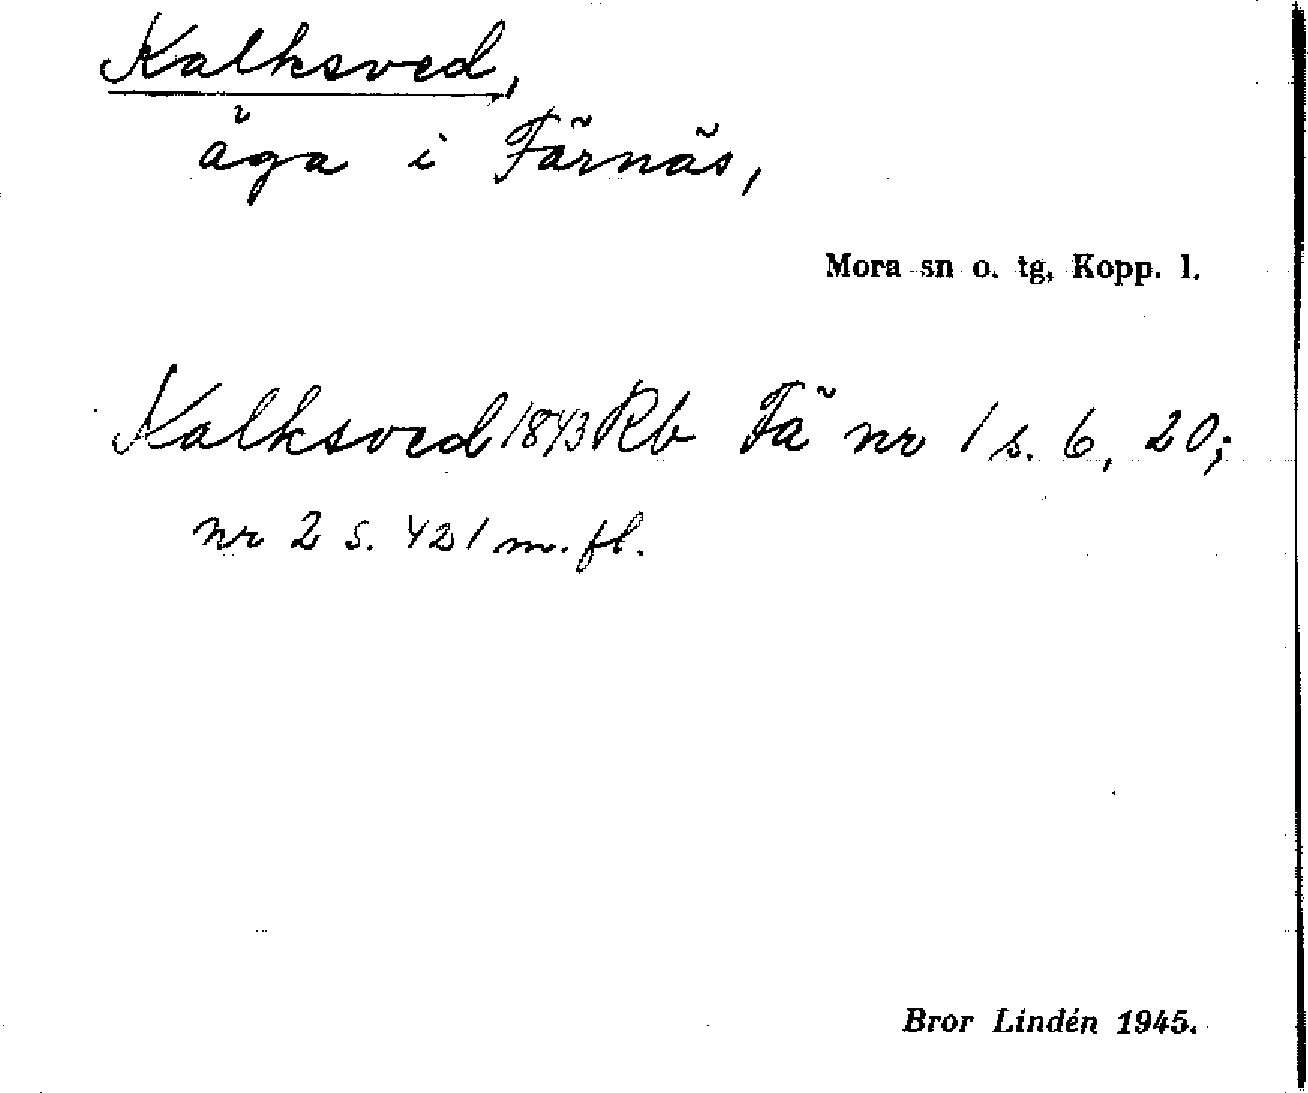 Kalksved,
äga i Färnäs,
Mora sn o. tg, Kopp. l.
Kalksved 1843 Rb Fä nr 1 s. 6, 20;
nr 2 s. 421 m. fl.
Bror Lindén 1945.